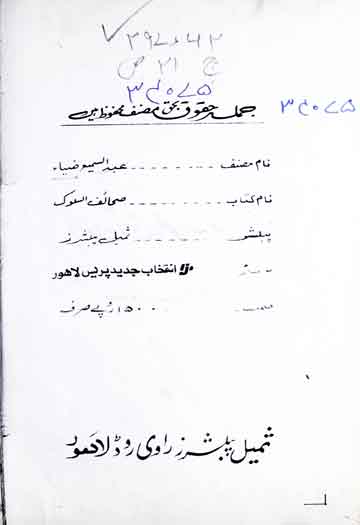 ۳۹۷۶۴۲
ج ۲۱ ص
۳۵۰۷۵
۳۵۰۷۵
جملہ حقوق بحق مصنف محفوظ ہیں
نام مصنف ------- عبدالسمیع ضیاء
نام کتاب ------- صحائف السلوک
پبلشر ------- ثمیل پبلشرز
انتخاب جدید پریس لاہور
۱۵۰ روپے صرف
ثمیل پبلشرز راوی روڈ لاھور